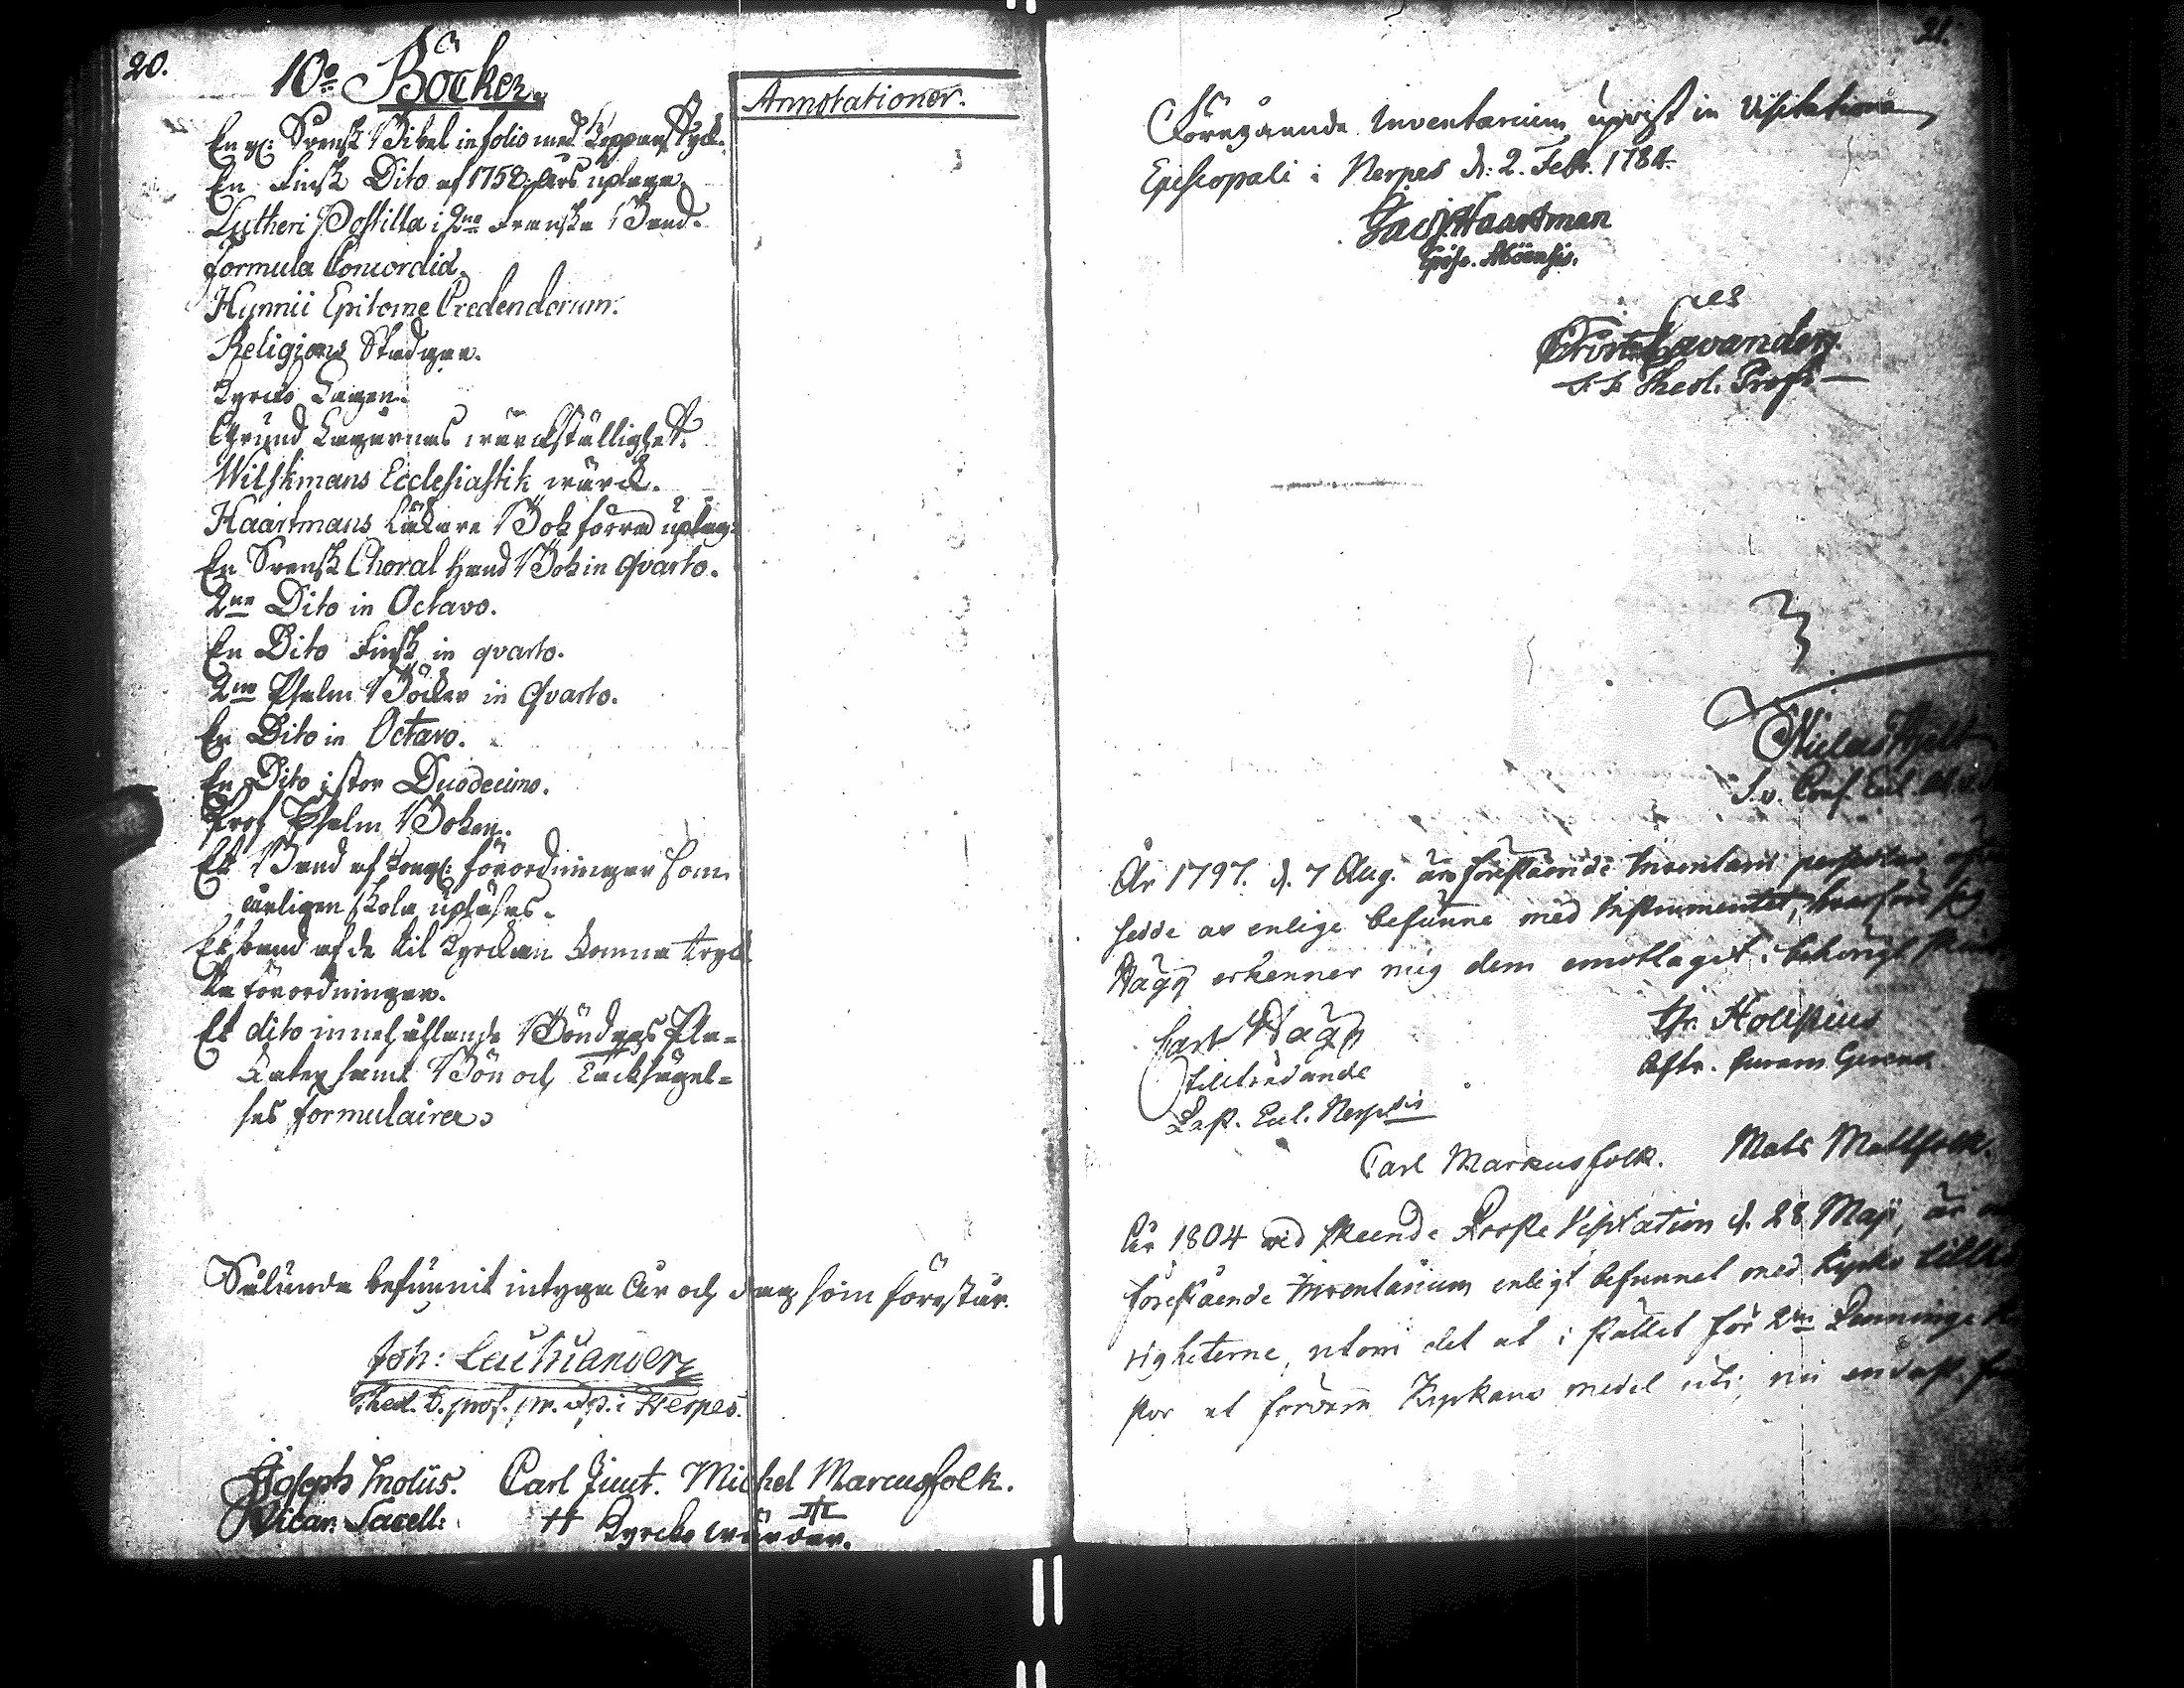 20.
10o Böcker.
Annotationer.
En gl: Svensk Bibel in folio med Kopparstyck.
En Finsk Dito af 1758 års uplaga.
Lutheri Postilla i 2ne Franska Band.
Formula Concordiæ.
Hynnii Epitome Credendorum.
Religions Stadgar.
Kyrcko Lagen.
Grund Lagarnas wärckställighet.
Wilskmans Ecclesiastik wärck.
Haartmans Läkare Bok förra uplag:
En Svensk Choral Hand Bok in qvarto.
2ne Dito in Octavo.
En Dito Finsk in qvarto.
2ne Psalm Böcker in Qvarto.
En Dito in Octavo.
En Dito i stor Duodecimo.
Prof Psalm Boken.
Et Band af Kongl: förordningar som
årligen skola upläsas.
Et band af de til Kyrckan komna tryck-
ta förordningar.
Et dito innehållande Böndags Pla-
kater samt Bön och Tacksägel-
ses formulairer.
Sålunda befunnit intyga år och dag som förestår.
Joh: Lavander
Theol. D. prof. pr. & p. i Nerpes.
Joseph Molliis. Carl Juut. Michel Marcusfolk.
Vicar: Sacell: Kyrcko wärdar.
21.
Föregående Inventarium upvist in Visitatione
Episcopali i Nerpes d: 2. Febr. 1784.
Jac. Haartman
Episc. Aboënsis.
Lavander
Theol. Prof.
År 1797. d. 7 Aug. äro förestående Inventarii persedlar
sedde av enlige befunne med Instrumentet, hvarföre
Hägg erkenner mig dem emottagit i behörigt
Carl Hägg
tillträdande
Past. Eccl. Nerpsis
Carl Markusfolk. Mats Mattfolk.
År 1804 wid skeende Prosts Visitation d. 28 Maji, är
förestående Inventarium enligt befunnet med Kyrko
righeterne, utom det at i stället för 2ne Penninge
stor at förvara Kyrkans medel uti, nu endast